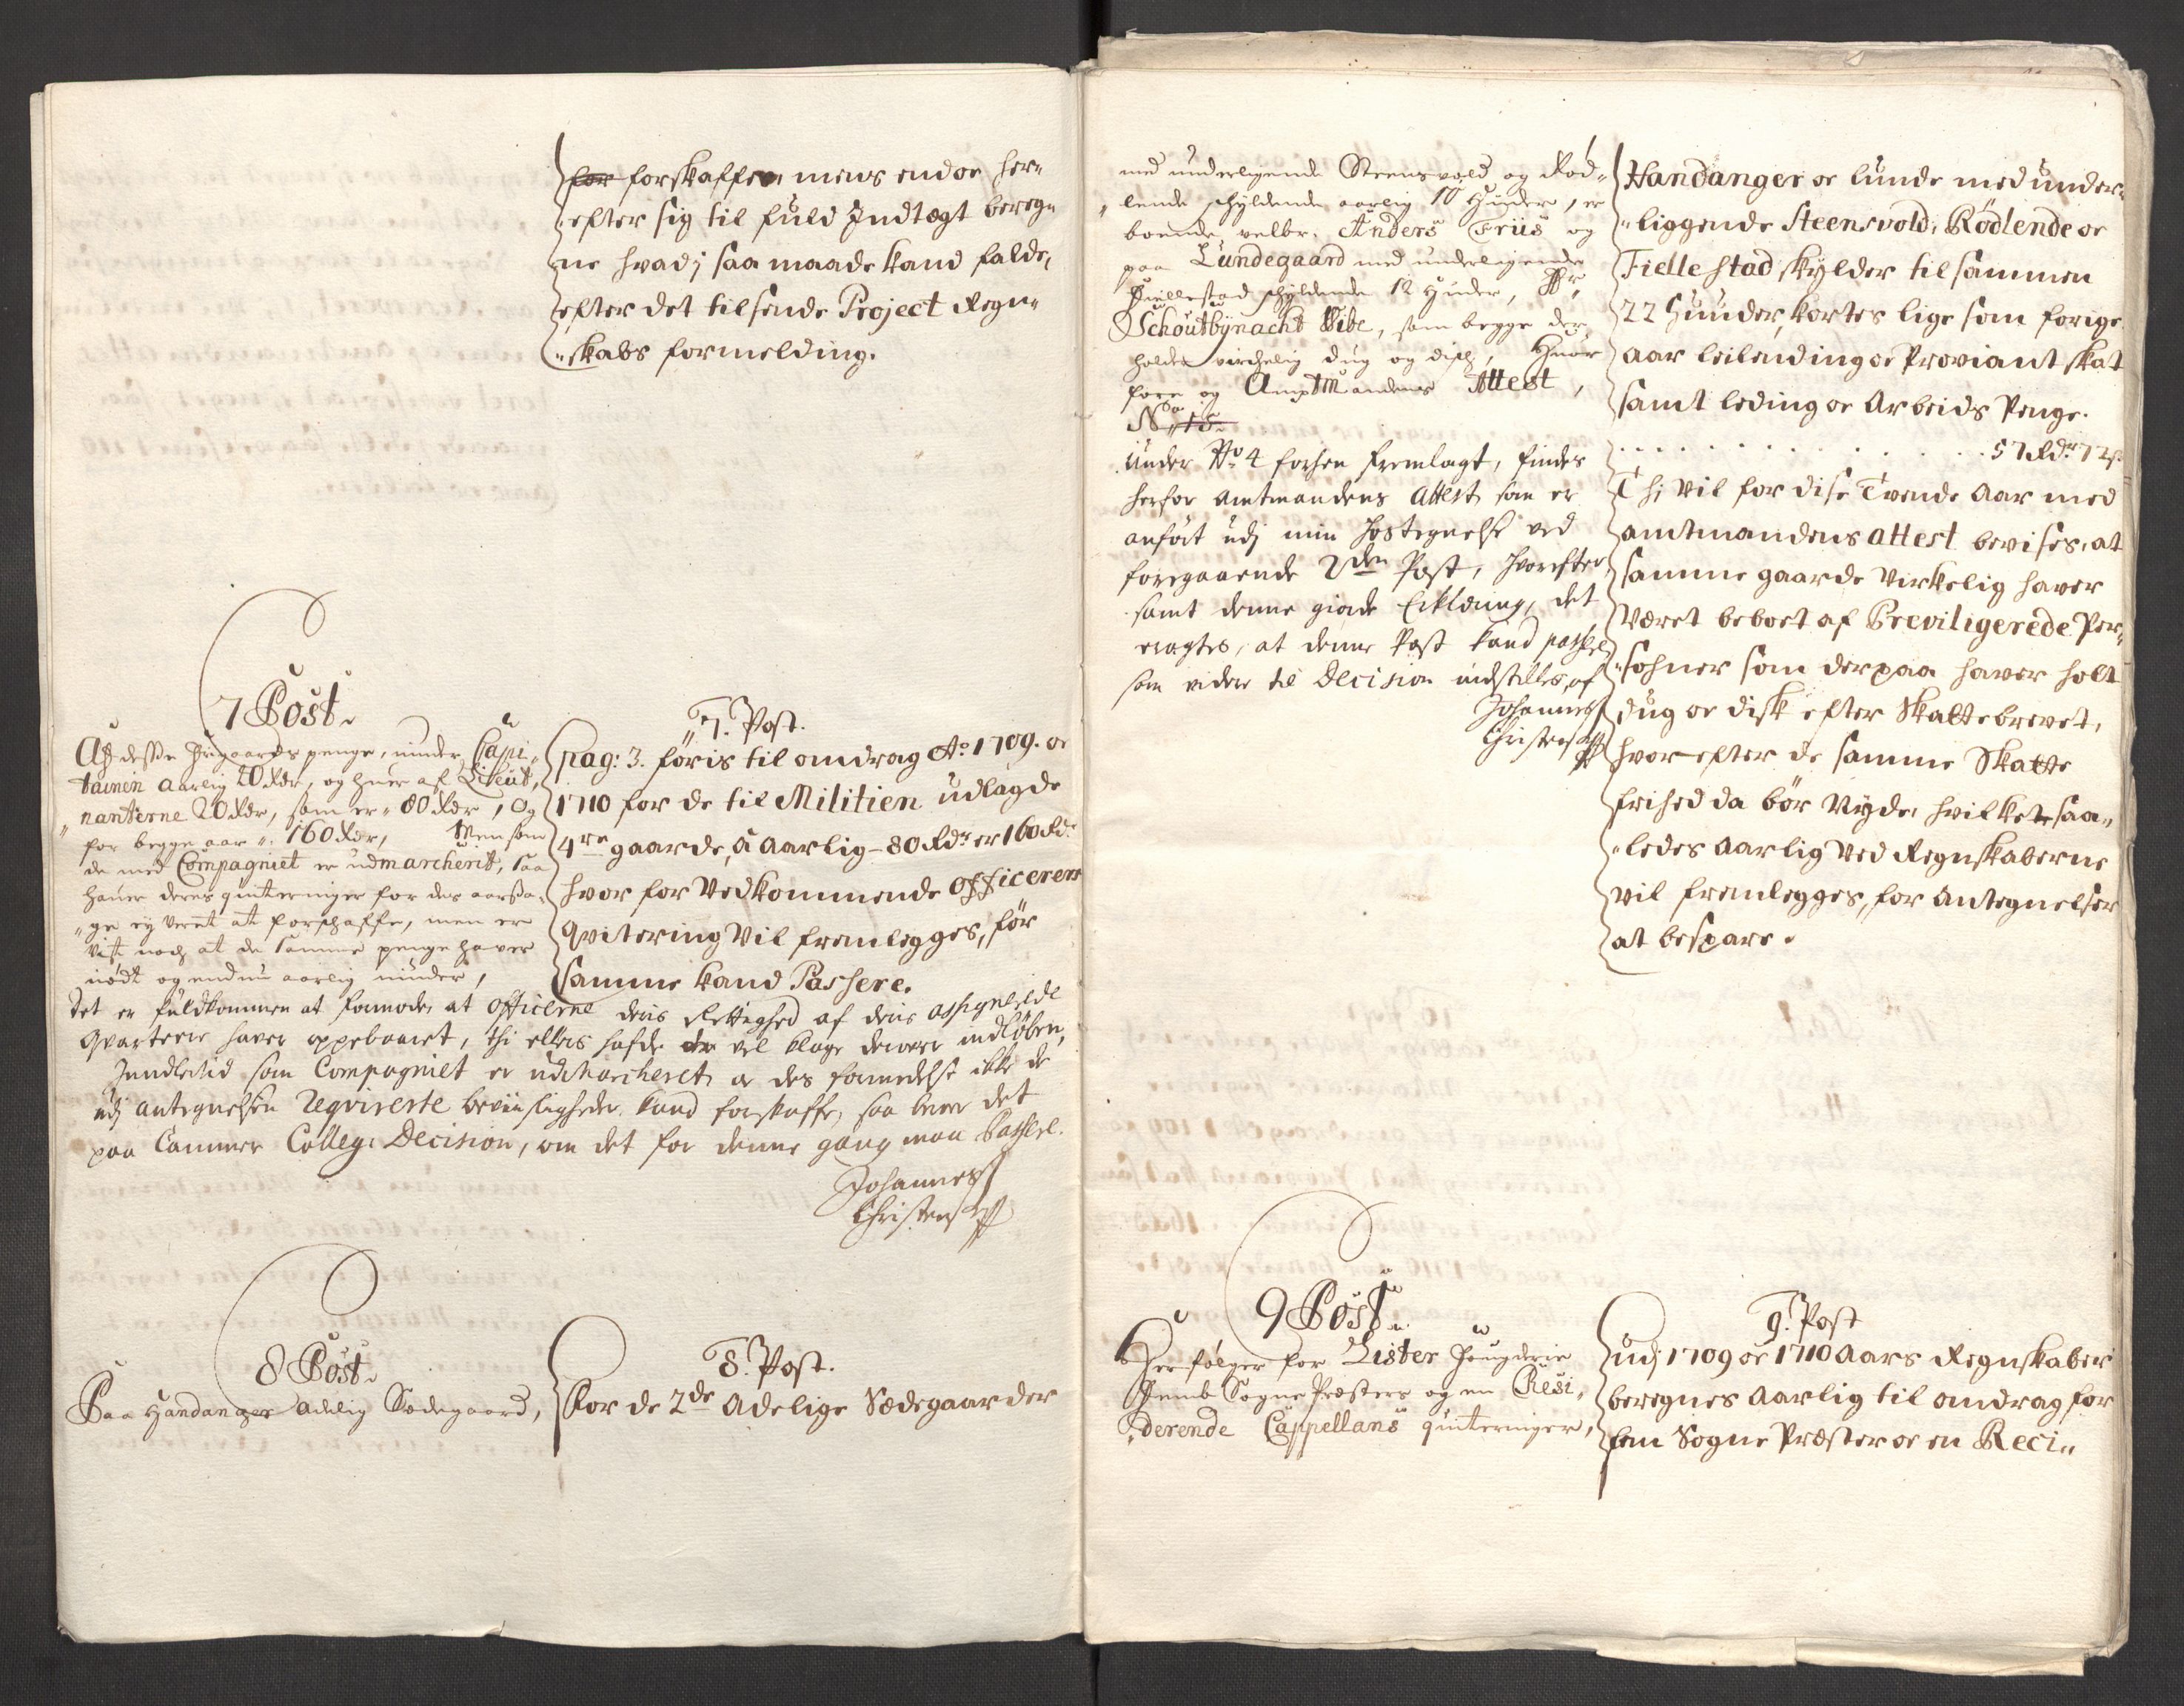 for forskaffer, mens endoe her-
efter sig til fuld Indtægt bereg-
ne hvad j saa maade kand falde,
efter det tilsende Project Regn-
skabs formelding.
7 Post.
Af desse frigaards penge, nyder Capi-
tainen aarlig 20 Rdr, og huer af Lieut-
nanterne 20 Rdr, som er 80 Rdr, og
for begge aar 160 Rdr, Men som
de med Compagniet er udmarcherit, saa
hauer deres quiteringer for des aarsa-
ge ej veret at forschaffe, men er
vist noch at de samme penge haver
nødt og endnu aarlig nyder,
7. Post.
pag: 3. føris til omdrag Ao 1709. oe
1710 for de til Militien udlagde
4re gaarde, â Aarlig 80 Rdr er 160 Rdr
hvor for Vedkommende Officerers
Qvitering Vil fremlegges, før
samme kand Passere.
Det er fuldkommen at formode, at Officerne deris Rettighed af deris assignerede
Qvarterer haver oppebaaret, thi ellers hafde vel klage derover indløben,
Imidlertid som Compagniet er udmarcheret, oe des formedelst ikke de
udj antegnelsen Reqvirerte beviisligheder kand forskaffe, saa beroer det
paa Cammer Colleg: Decision, om det for denne gang maa Passere.
Johannes
Christensen
8 Post.
Paa Handanger Adelig Sædegaard,
8. Post.
For de 2de Adelige Sædegaarder
med underligende Steensvold og Rød-
lende schyldende aarlig 10 Huder, er
boende velbr. Anders Friis og
paa Lundegaard med underligende
Fiellestad schyldende 12 Huder, Hr
Schoutbynacht Wibe, som begge der
holder virchelig dug og disch, Huor
fore og Amptmandens Attest,
No 15
Under No 4 forhen fremlagt, findes
herfor Amtmandens Attest, som er
anført udj min hostegnelse ved
foregaaende 2den Post, hvorefter
samt denne giorde Erklæring, det
eragtes, at denne Post kand passere
som videre til Decision indstilles, af
Johannes
Christensen
Handanger oe Lunde med under-
liggende Steensvold, Rødlende oe
Fiellestad skylder tilsammen
22 Huuder, kortes lige som forige
aar leilending oe Proviant skat
samt leding oe Arbeids Penge.
. . . . . . . . . . . . . 57 Rdr 72 s
Thi Vil for dise Tvende Aar med
amtmandens attest bevises, at
samme gaarde Virkelig haver
Været beboet af Previligerede Per-
sohner som derpaa haver holt
dug oe disk efter Skattebrevet,
hvorefter de samme Skatte
frihed da bør Nyde, hvilket saa-
ledes Aarlig Ved Regnskaberne
vil fremlegges, for Antegnelser
at bespare.
9 Post.
Her følger for Lister Fougderie
Femb Sogne Præsters og en Resi-
derende Cappellans quiteringer,
9. Post
udj 1709 oe 1710 Aars Regnskaber
beregnes Aarlig til omdrag for
fem Sogne Præster oe en Reci-